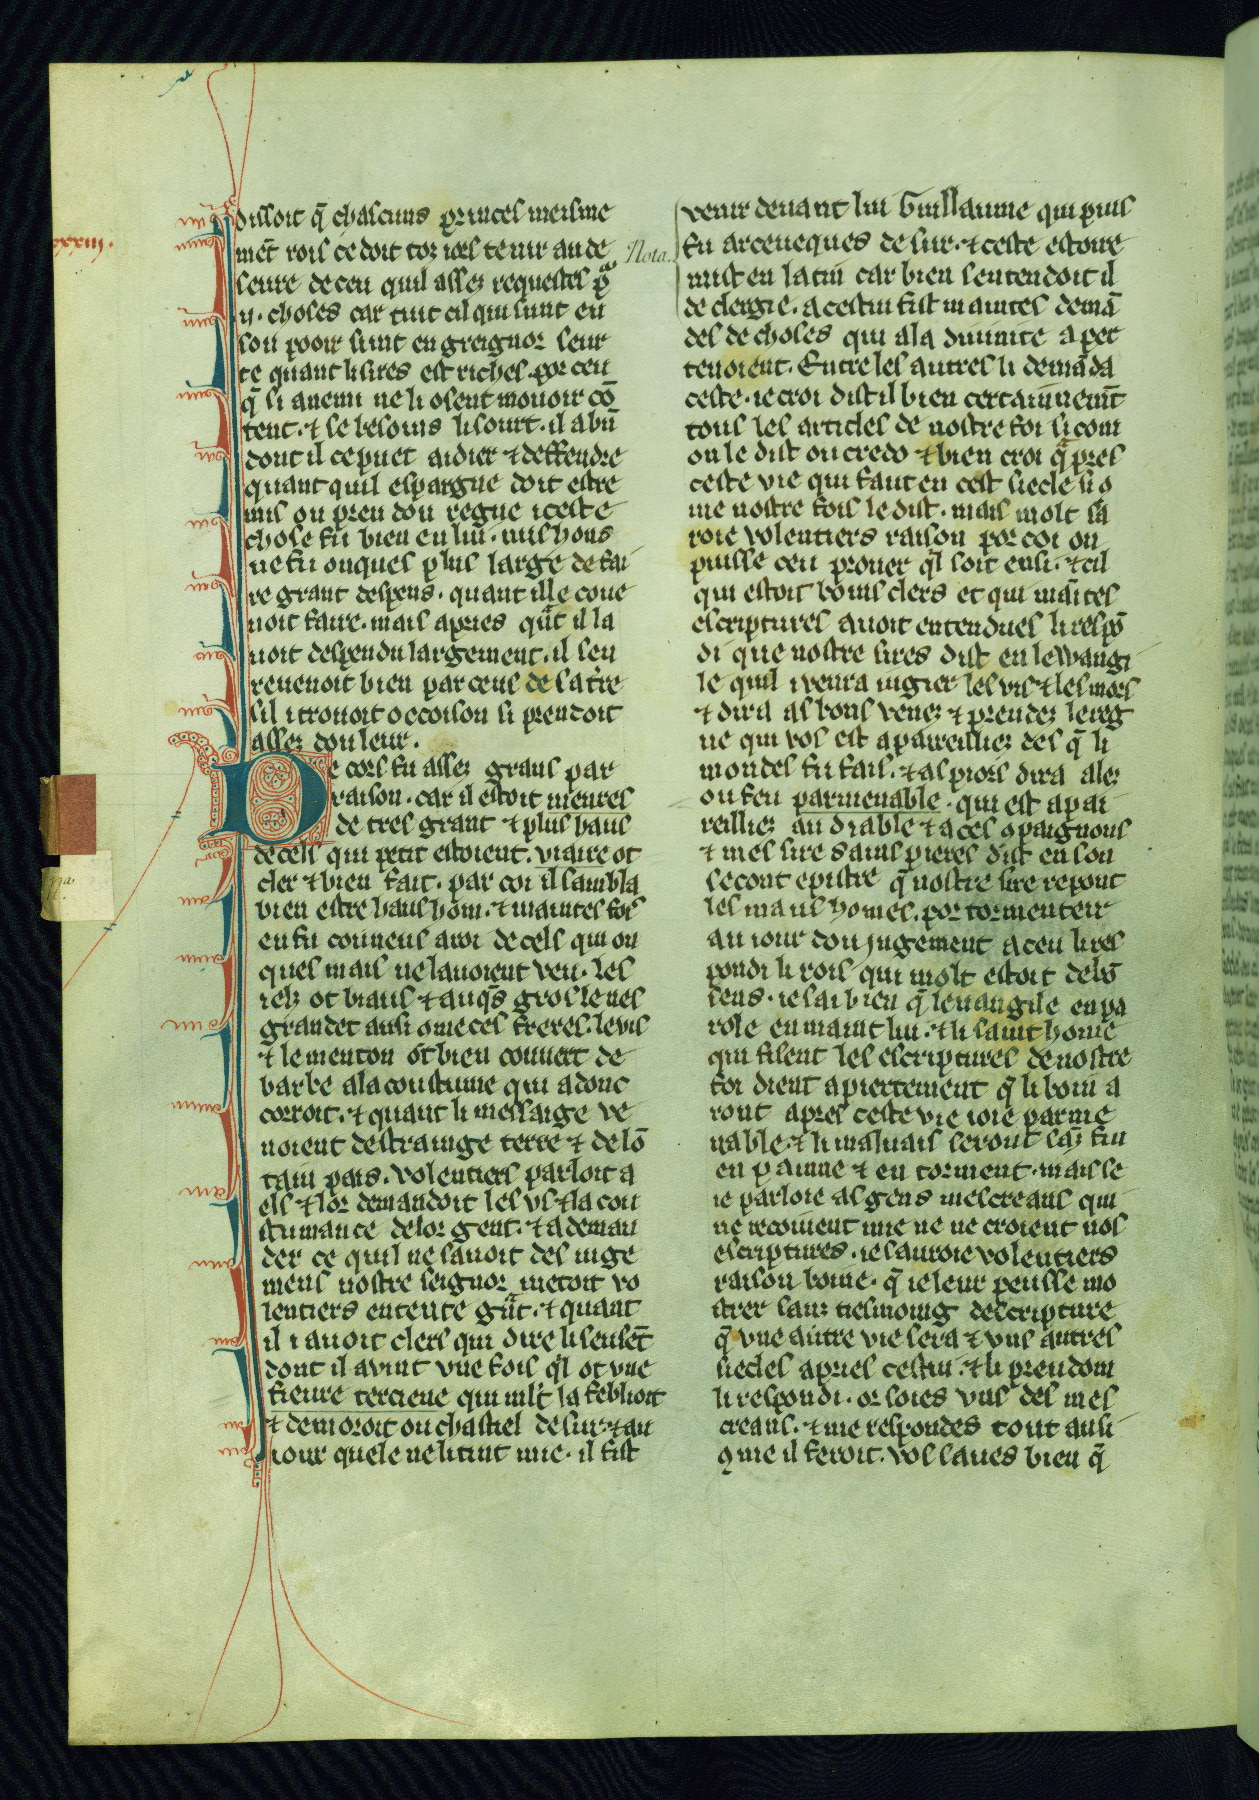 disoit q̄ chascuns princes meisme
met̄ rois ce doit toz iors tenir an de
seure de ceu quil asses requestes pͣ
.ii. choses car tuit cil qui sunt en
son pooir sunt en greignor seur
te quant li sires est riches por ceu
q̄ li auenu ne li osent mouoir cō
tent. ⁊ se besoins li sourt. il a bn̄
dont il ce puet aidier ⁊ deffendre
quant quil espargne doit estre
mis ou preu dou regne iceste
chose fu bien en lui. nus hons
ne fu onques plus large de fai
re grant despens. quant il le coue
noit faire. mais apries qͣt il la
uoit despendu largement. il sen
reuenoit bien par ceus de sa tr̄re
sil i trouoit occoison si prendoit
assez dou leur.
De cors fu assez grans par
raison. car il estoit menres
de tres grant ⁊ plus haus
de cels qui petit estoient. viaire ot
cler ⁊ bien fait. par coi il sambla
bien estre haus hom. ⁊ maintes fois
en fu conneus a roi de cels qui on
ques mais ne lauoient veu. les
ielz ot biaus ⁊ auq̄s gros le nes
grandet ausi ome ces freres. le vis
⁊ le menton ot bien couuert de
barbe a la coustume qui adonc
corroit. ⁊ quant li messaige ve
noient destrainge terre ⁊ de lō
tain pais. volentiers parloit a
els ⁊ lor demandoit les us ⁊ la cou
stumance de lor gent. ⁊ a deman
der ce quil ne sauoit des iuge
mens nostre seignor metoit vo
lentiers entente gͣt. ⁊ quant
il i auoit clers qui dire li seuset̄
dont il avint vne fois ql ot vne
fieure terciene qui mlt̄ la feblioit
⁊ demoroit ou chastel de sur. ⁊ au
iour quele ne li tint mie. il fist
Nota.
venir deuant lui Guillaume qui puis
fu arceueques de sur. ⁊ ceste estoire
mist en latin car bien sentendoit il
de clergie. a cestui fist maintes demā
des de choses qui a la diuinite a per
tenoient. Entre les autres li demāda
ceste. ie croi dist il bien certainnemt̄
tous les articles de nostre foi si com
on le dist ou credo ⁊ bien croi qͣpres
ceste vie qui faut en cest siecle si o
me nostre fois le dist. mais molt sa
roie volentiers raison por coi on
puisse ceu prouer ql soit ensi. ⁊ cil
qui estoit bouns clers et qui maītes
escriptures auoit entendues li respō
di que nostre sires dist en lewangi
le quil i venra iugier les vis ⁊ les mors
⁊ dira as bons venez ⁊ prendez le reg
ne qui vos est apareilliez des q̄ li
mondes fu fais. ⁊ as piors dira alez
ou feu parmenable. qui est apai
reilliez au diable ⁊ a ces ꝯpaignons
⁊ mes sire sains pieres dist en son
secont epistre q̄ nostre sire repont
les maus homes. por tormenteir
au iour dou jugement a ceu li res
pondi li rois qui molt estoit de bō
sens. ie sai bien q̄ leuangile en pa
role en maint liu. ⁊ li saint home
qui firent les escriptures de nostre
foi dient apiertement q̄ li boin a
ront apres ceste vie ioie parme
nable. ⁊ li maluais seront sāz fin
en painne ⁊ en torment. mais se
ie parloie as gens mescreans qui
ne recoiuent mie ne ne croient nos
escriptures. ie sauroie volentiers
raison boine. q̄ ie leur peusse mo
strer sanz tiesmoing descripture
q̄ vne autre vie sera ⁊ vns autres
siecles apries cestui. ⁊ li preudom
li respondi. or soies vns des mes
creans. ⁊ me respondes tout ausi
ꝯme il feroit. vos saues bien q̄